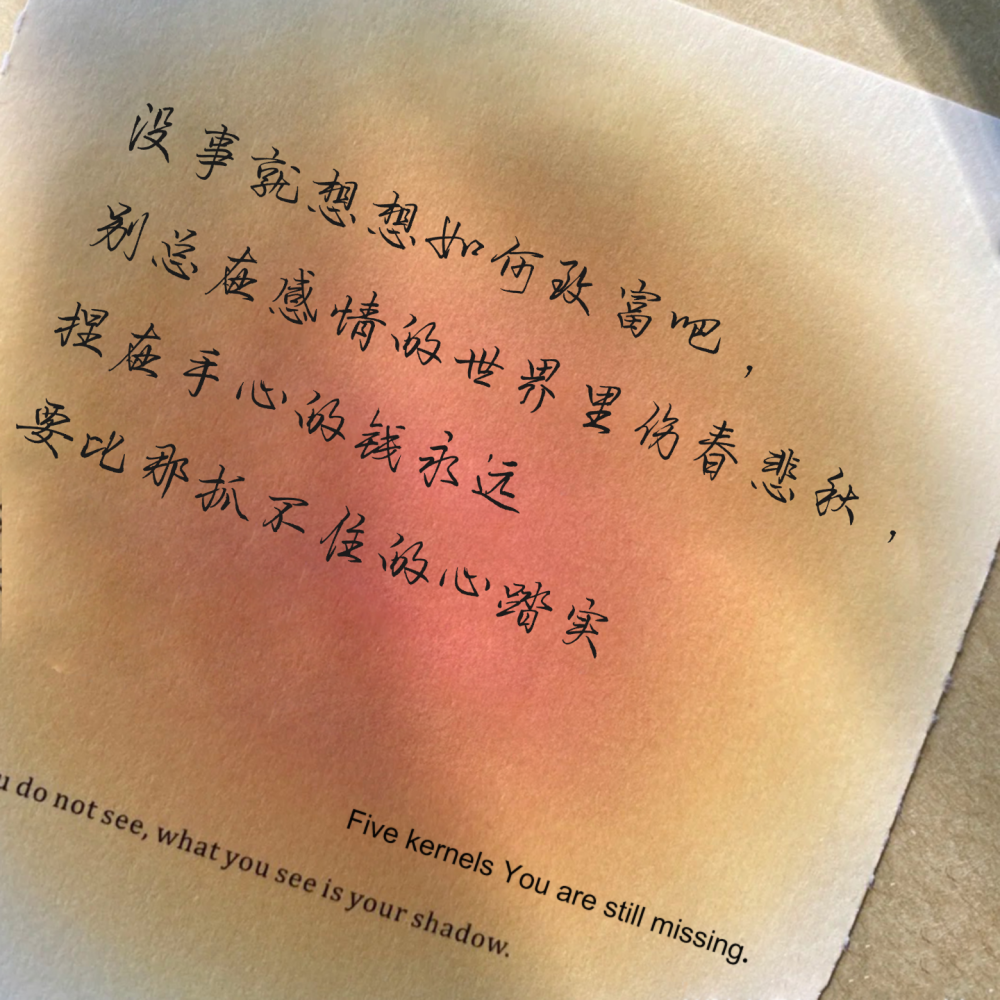 没事就想想如何致富吧，
别总在感情的世界里伤春悲秋，
捏在手心的钱永远
要比那抓不住的心踏实
Five kernels You are still missing.
do not see, what you see is your shadow.